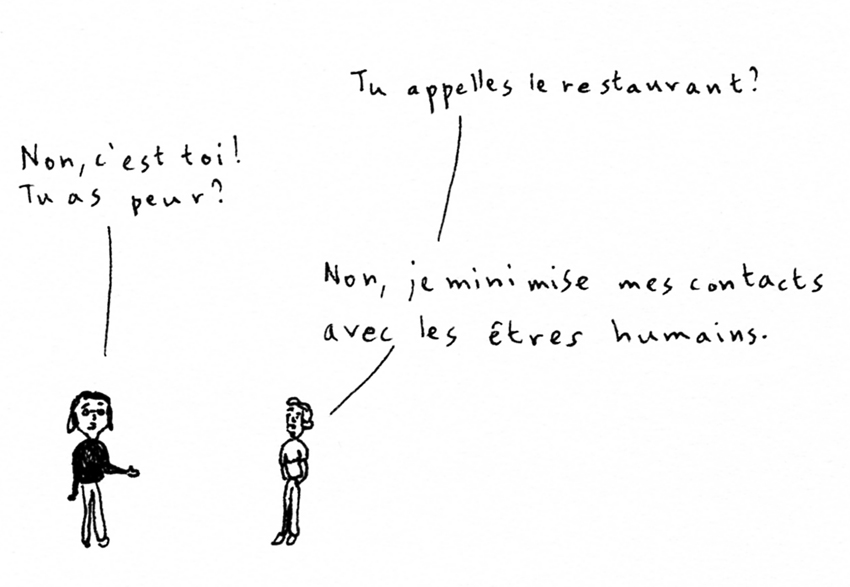 Tu appelles le restaurant?
Non, c'est toi!
Tu as peur?
Non, je minimise mes contacts
avec les êtres humains.